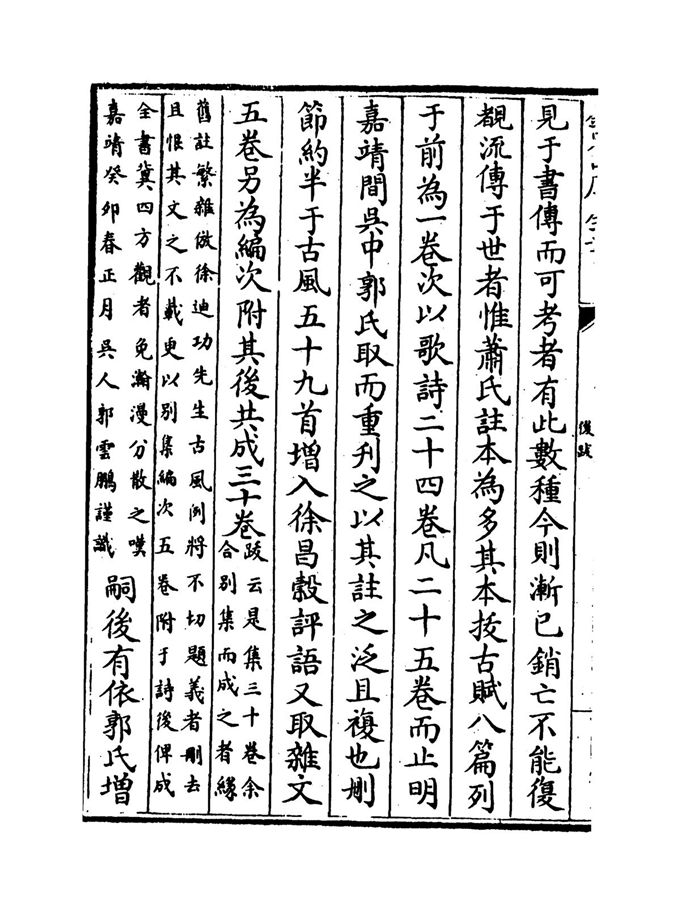 後跋
見于書傳而可考者有此數種今則漸已銷亡不能復
覩流傳于世者惟蕭氏註本為多其本按古賦八篇列
于前為一卷次以歌詩二十四卷凡二十五卷而止明
嘉靖間吳中郭氏取而重刋之以其註之泛且複也刪
節約半于古風五十九首增入徐昌穀評語又取雜文
五卷另為編次附其後共成三十卷
跋云是集三十卷余
合别集而成之者緣
舊註繁雜倣徐迪功先生古風例將不切題義者刪去
且恨其文之不載更以别集編次五卷附于詩後俾成
全書冀四方觀者免瀚漫分散之嘆
嘉靖癸卯春正月吳人郭雲鵬謹識
嗣後有依郭氏增